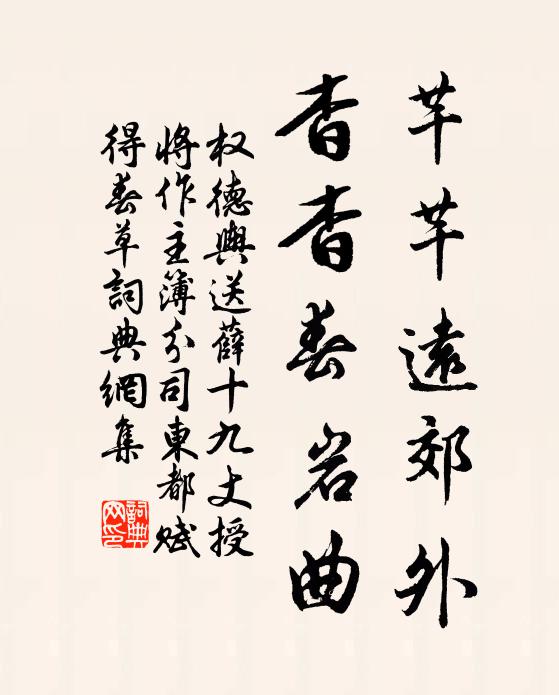 芊芊遠郊外
杳杳春岩曲
权德與送薛十九丈授
将作主簿分司東都賦
得春草詞典網集
詞典网印